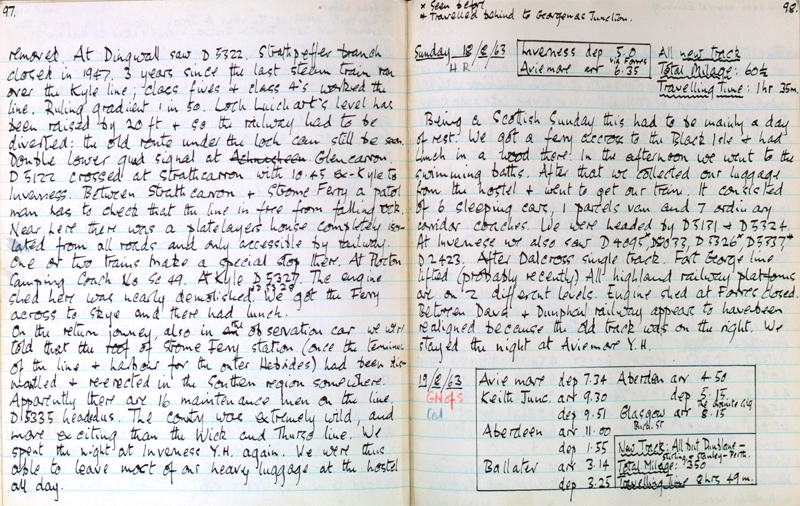 97.
removed. At Dingwall saw D5322. Strathpeffer branch
closed in 1947. 3 years since the last steam train ran
over the Kyle line; class fives & class 4's worked the
line. Ruling gradient 1 in 50. Loch Luichart's level has
been raised by 20ft & so the railway had to be
diverted: the old route under the loch can still be seen.
Double lower quad signal at Achnasheen Glencarron.
D5122 crossed at Strathcarron with 10.45 ex-Kyle to
Inverness. Between Strathcarron & Strome Ferry a patrol
man has to check that the line is free from falling rock.
Near here there was a platelayers house completely iso-
lated from all roads and only accessible by railway.
One or two trains make a special stop there. At Plockton
Camping Coach No SC 49. At Kyle D5327. The engine
shed here was nearly demolished. We got the Ferry
across to Skye and there had lunch.
On the return journey, also in observation car we were
told that the roof of Strome Ferry station (once the terminus
of the line & harbour for the outer Hebrides) had been dis-
mantled & re-erected in the Southern region somewhere.
Apparently there are 16 maintenance men on the line.
D5335 headed us. The county was extremely wild, and
more exciting than the Wick and Thurso line. We
spent the night at Inverness Y.H. again. We were thus
able to leave most of our heavy luggage at the hostel
all day.
98.
* Seen before
+ Travelled behind to Georgemas Junction.
Sunday 18/8/63
HR
Inverness dep 5.0
via Forres
Aviemore arr 6.35
All new track
Total Milage: 60½
Travelling Time: 1hr 35m.
Being a Scottish Sunday this had to be mainly a day
of rest. We got a ferry accross to the Black Isle & had
lunch in a wood there. In the afternoon we went to the
swimming baths. After that we collected our luggage
from the hostel & went to get our train. It consisted
of 6 sleeping cars, 1 parcels van and 7 ordinary
corridor coaches. We were headed by D5131 & D5324.
At Inverness we also saw D4095, D5033, D5326* D5337*
D2423. After Dalcross single track. Fort George line
lifted (probably recently) All highland railway platforms
are on 2 different levels. Engine shed at Forres closed.
Between Dava & Dunphail railway appears to have been
realigned because the old track was on the right. We
stayed the night at Aviemore Y.H.
19/8/63
GNofS
Cal
Aviemore dep 7.34
Keith Junc. arr 9.30
dep 9.51
Aberdeen arr 11.00
dep 1.55
Ballater arr 3.14
dep 3.25
Aberdeen arr 4.50
dep 5.15
The Granite City
Glasgow arr 8.15
Buch. St
New Track: All but Dunblane -
Stirling & Stanley - Perth.
Total Milage: 350
Travelling Time 8hrs 49m.